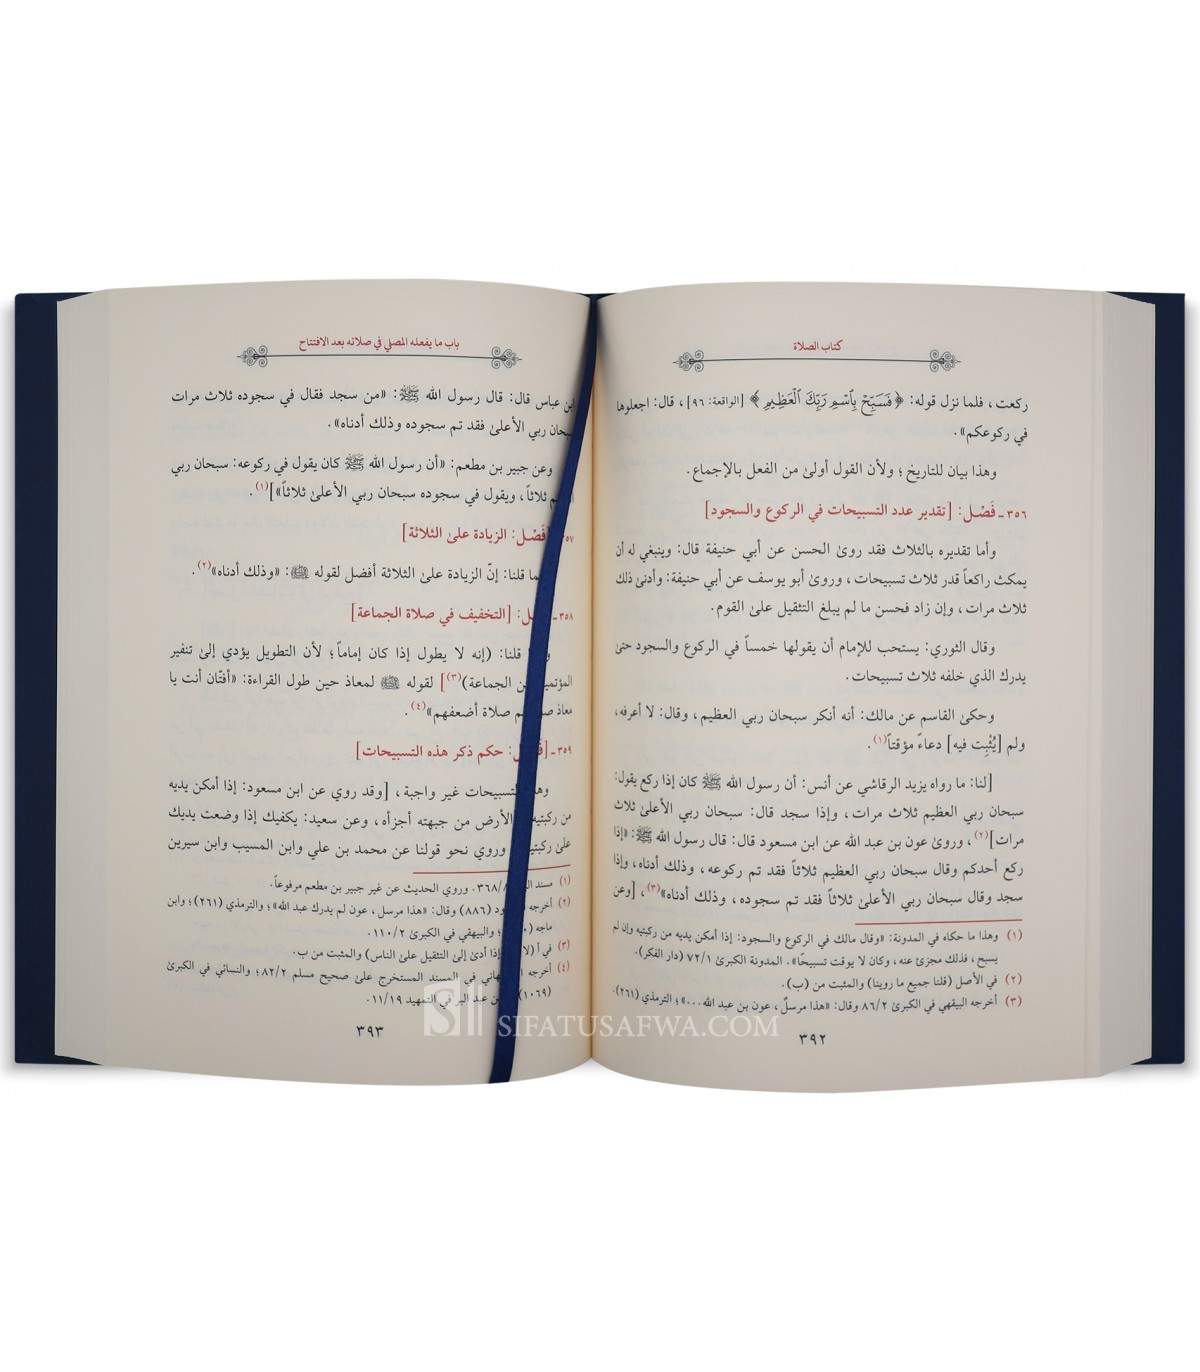 كتاب الصلاة
ركعت، فلما نزل قوله: ﴿فَسَبِّحْ بِٱسْمِ رَبِّكَ ٱلْعَظِيمِ﴾ [الواقعة: ٩٦]، قال: اجعلوها
في ركوعكم».
وهذا بيان للتاريخ؛ ولأن القول أولىٰ من الفعل بالإجماع.
٣٥٦ـ فَصْل: [تقدير عدد التسبيحات في الركوع والسجود]
وأما تقديره بالثلاث فقد روىٰ الحسن عن أبي حنيفة قال: وينبغي له أن
يمكث راكعاً قدر ثلاث تسبيحات، وروىٰ أبو يوسف عن أبي حنيفة: وأدنىٰ ذلك
ثلاث مرات، وإن زاد فحسن ما لم يبلغ التثقيل علىٰ القوم.
وقال الثوري: يستحب للإمام أن يقولها خمساً في الركوع والسجود حتىٰ
يدرك الذي خلفه ثلاث تسبيحات.
وحكىٰ القاسم عن مالك: أنه أنكر سبحان ربي العظيم، وقال: لا أعرفه،
ولم [يُثْبِت فيه] دعاءً مؤقتاً(١).
[لنا: ما رواه يزيد الرقاشي عن أنس: أن رسول الله ﷺ كان إذا ركع يقول:
سبحان ربي العظيم ثلاث مرات، وإذا سجد قال: سبحان ربي الأعلىٰ ثلاث
مرات](٢)، وروىٰ عون بن عبد الله عن ابن مسعود قال: قال رسول الله ﷺ: «إذا
ركع أحدكم وقال سبحان ربي العظيم ثلاثاً فقد تم ركوعه، وذلك أدناه، وإذا
سجد وقال سبحان ربي الأعلىٰ ثلاثاً فقد تم سجوده، وذلك أدناه»(٣)، [وعن
(١) وهذا ما حكاه في المدونة: «وقال مالك في الركوع والسجود: إذا أمكن يديه من ركبتيه وإن لم
يسبح، فذلك مجزئ عنه، وكان لا يوقت تسبيحًا». المدونة الكبرىٰ ٧٢/١ (دار الفكر).
(٢) في الأصل (قلنا جميع ما روينا) والمثبت من (ب).
(٣) أخرجه البيهقي في الكبرىٰ ٨٦/٢ وقال: «هذا مرسلٌ، عون بن عبد الله...»؛ الترمذي (٢٦١).
٣٩٢
باب ما يفعله المصلي في صلاته بعد الافتتاح
ابن عباس قال: قال رسول الله ﷺ: «من سجد فقال في سجوده ثلاث مرات
سبحان ربي الأعلىٰ فقد تم سجوده وذلك أدناه».
وعن جبير بن مطعم: «أن رسول الله ﷺ كان يقول في ركوعه: سبحان ربي
ثلاثاً، ويقول في سجوده سبحان ربي الأعلىٰ ثلاثاً»](١).
[فَصْل: الزيادة علىٰ الثلاثة]
قلنا: إنّ الزيادة علىٰ الثلاثة أفضل لقوله ﷺ: «وذلك أدناه»(٢).
٣٥٨ـ : [التخفيف في صلاة الجماعة]
قلنا: (إنه لا يطول إذا كان إماماً؛ لأن التطويل يؤدي إلىٰ تنفير
الجماعة)(٣)] لقوله ﷺ لمعاذ حين طول القراءة: «أفتّان أنت يا
معاذ صلاة أضعفهم»(٤).
٣٥٩ـ : حكم ذكر هذه التسبيحات]
التسبيحات غير واجبة، [وقد روي عن ابن مسعود: إذا أمكن يديه
من ركبتيه الأرض من جبهته أجزأه، وعن سعيد: يكفيك إذا وضعت يديك
علىٰ وروي نحو قولنا عن محمد بن علي وابن المسيب وابن سيرين
(١) مسند ٣٦٨/. وروي الحديث عن غير جبير بن مطعم مرفوعاً.
(٢) أخرجه (٨٨٦) وقال: «هذا مرسل، عون لم يدرك عبد الله»؛ والترمذي (٢٦١)؛ وابن
ماجه ؛ والبيهقي في الكبرىٰ ١١٠/٢.
(٣) في أ إذا أدىٰ إلى التثقيل علىٰ الناس) والمثبت من ب.
(٤) أخرجه في المسند المستخرج علىٰ صحيح مسلم ٨٢/٢؛ والنسائي في الكبرىٰ
(١٠٦٩) عبد البر في التمهيد ١١/١٩.
٣٩٣
SIFATUSAFWA.COM